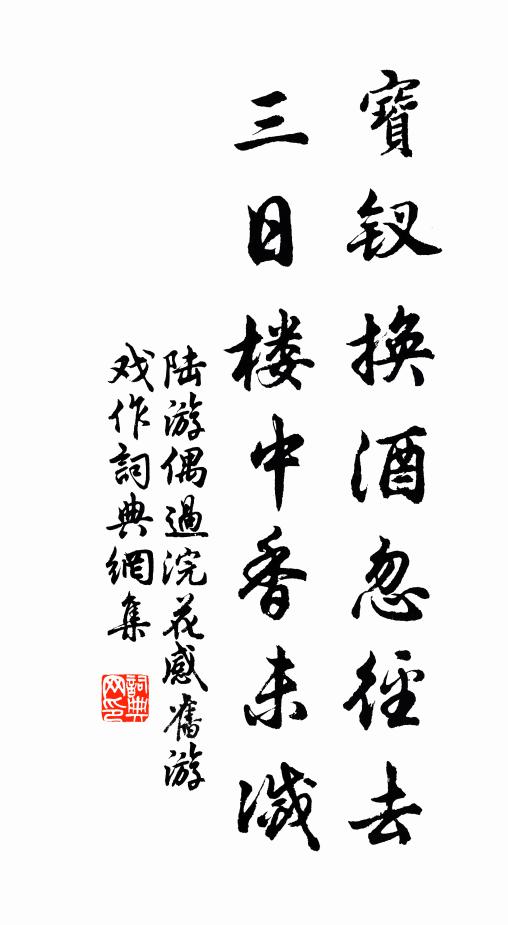 寶釵換酒忽徑去
三日楼中香未滅
陆游偶過浣花感舊游
戏作詞典網集
詞典
网印